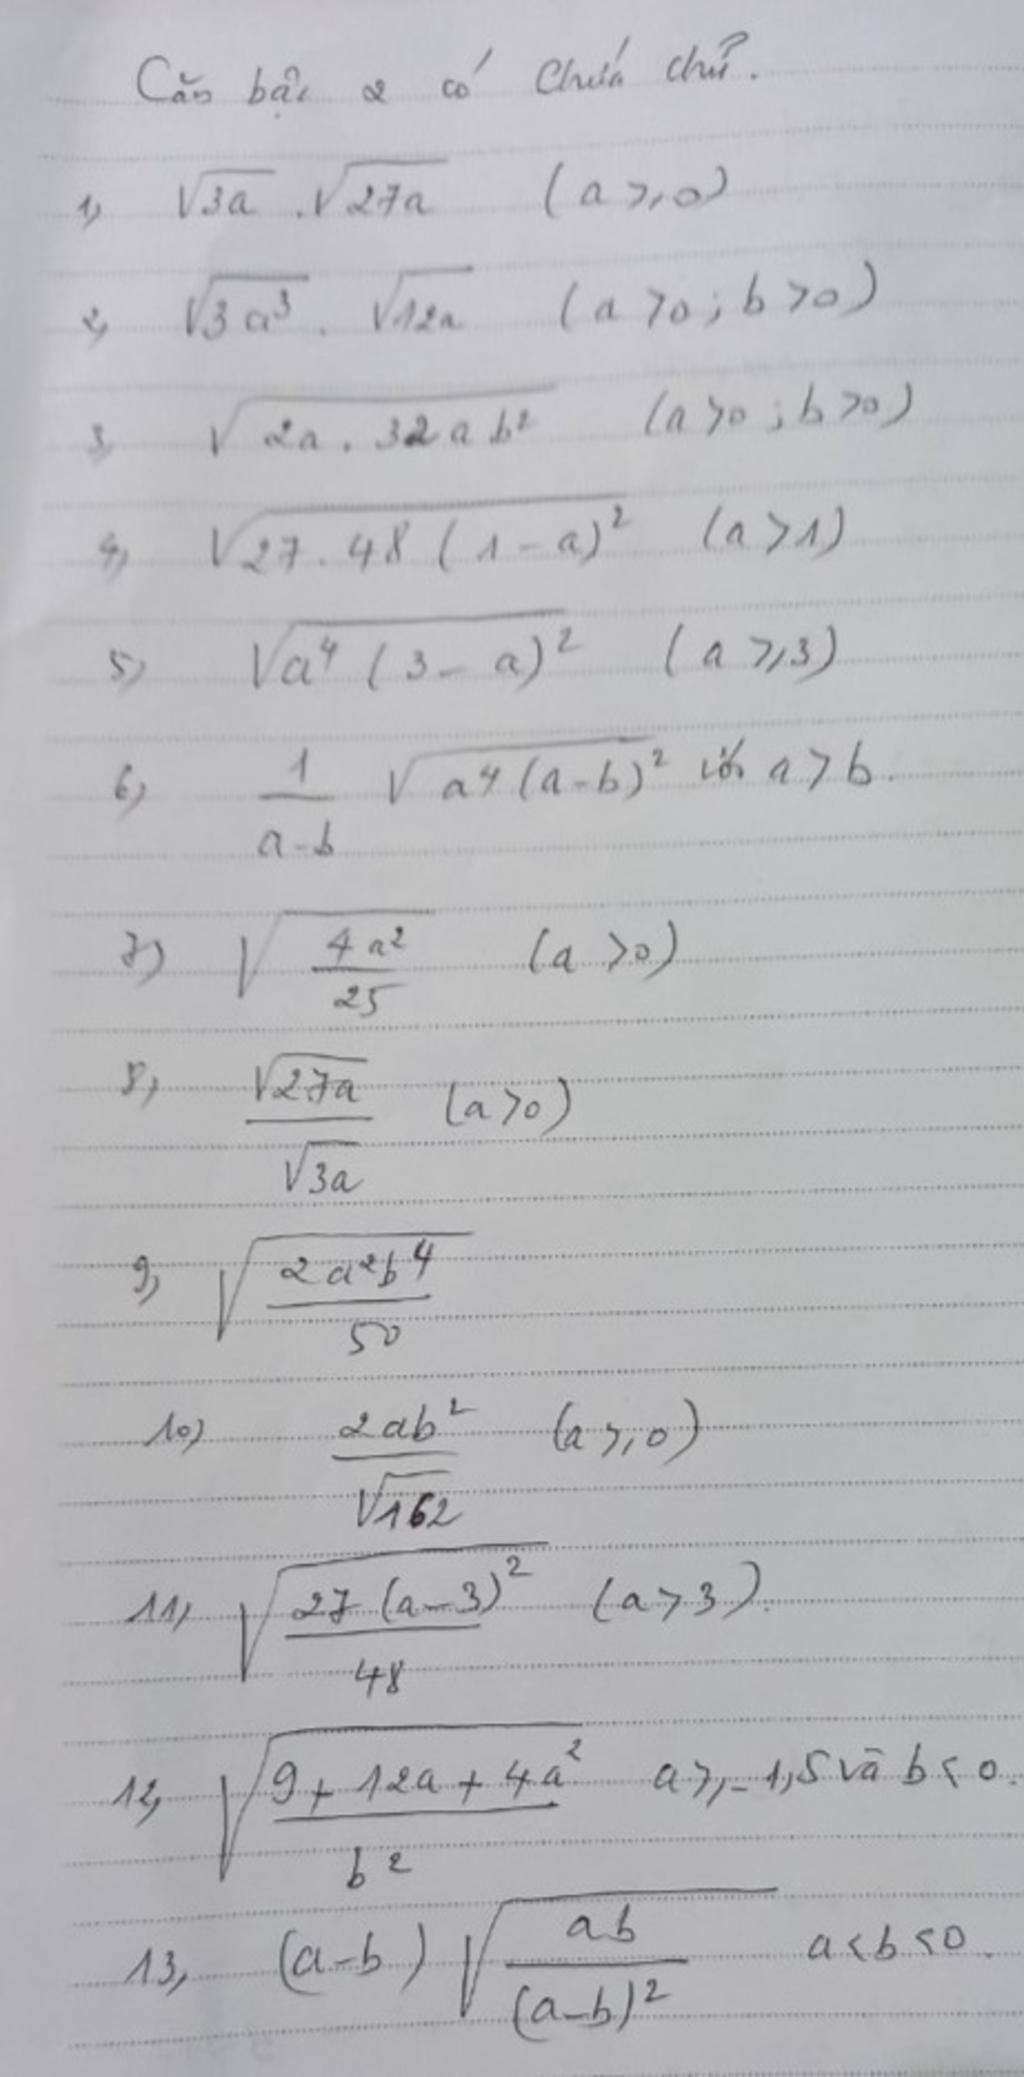 Căn bậc 2 có chứa chữ.
1) √3a . √27a (a ≥ 0)
2, √3a³ . √12a (a > 0 ; b > 0)
3, √2a . 32ab² (a > 0 ; b > 0)
4, √27 . 48 (1 - a)² (a > 1)
5) √a⁴ (3 - a)² (a ≥ 3)
6, 1/(a-b) √a⁴ (a-b)² với a > b.
7) √4a²/25 (a > 0)
8, √27a/√3a (a > 0)
9, √2a²b⁴/50
10) 2ab²/√162 (a ≥ 0)
11, √27 (a-3)²/48 (a > 3).
12, √9 + 12a + 4a²/b² a ≥ -1,5 và b < 0.
13, (a-b) √ab/(a-b)² a < b < 0.